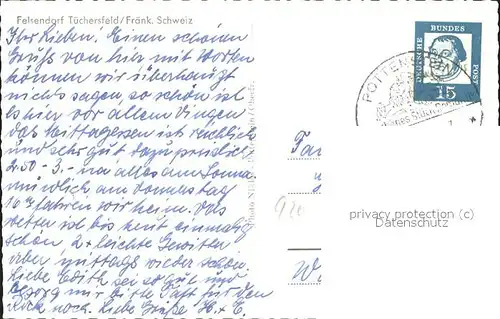 Felsendorf Tüchersfeld/Fränk. Schweiz
Ihr Lieben. Einen schönen
Gruß von hier mit Worten
können wir überhaupt
nichts sagen, so schön ist
es hier vor allem Dingen
das Mittagessen ist reichlich
und sehr gut dazu preislich
2.50 - 3.- na alles am Sonna
16 h fahren wir heim. Das
Wetter ist bis heut einmalig
schön 2 leichte Gewitter
über mittags wieder schön.
Liebe Edith sei so gut und
besorg mir bitte Taft für den
Rock noch. Liebe Grüße H. + E.
DEUTSCHE BUNDESPOST
15
POTTEN
privacy protection (c)
Datenschutz